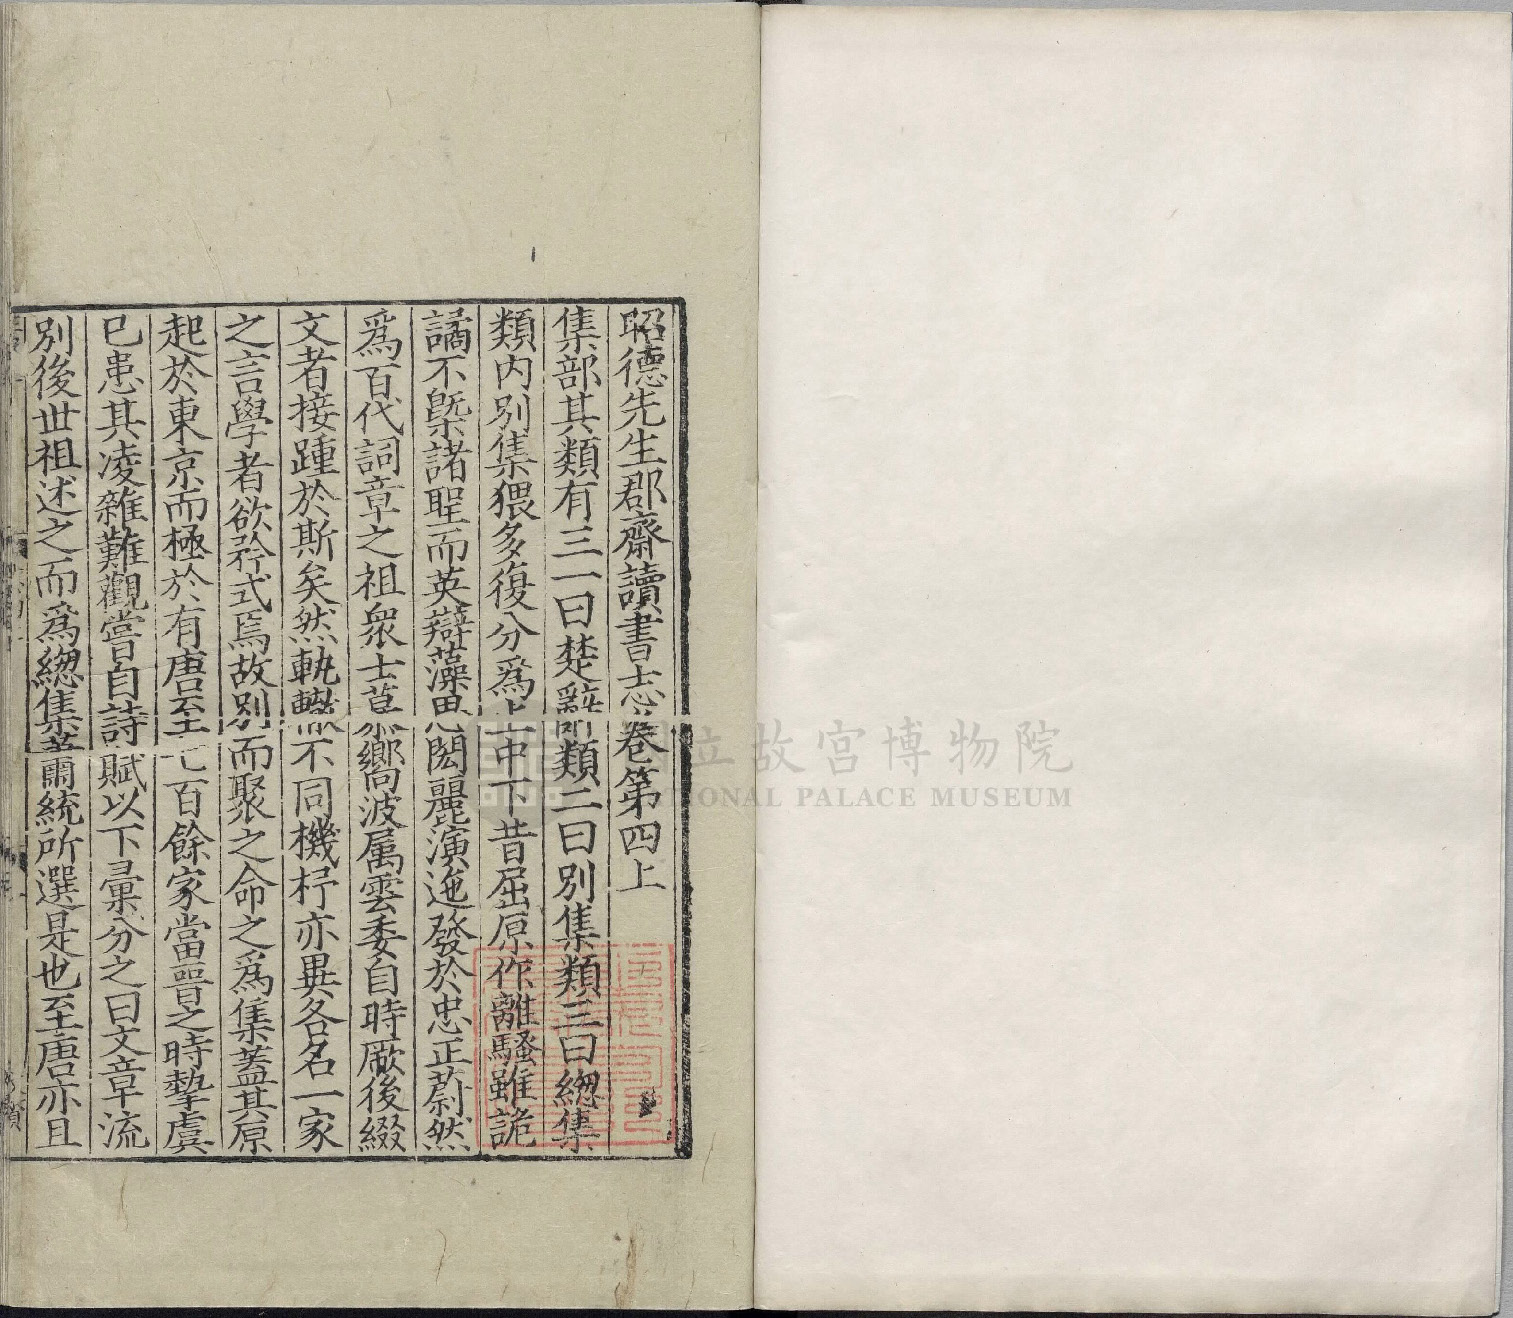 昭德先生郡齋讀書志卷第四上
集部其類有三一曰楚辭類二曰別集類三曰緫集
類内別集猥多復分爲上中下昔屈原作離騷雖詭
譎不槩諸聖而英辯藻思閎麗演迤發於忠正蔚然
爲百代詞章之祖衆士慕嚮波属雲委自時厥後綴
文者接踵於斯矣然軌轍不同機杼亦異各名一家
之言學者欲矜式焉故別而聚之命之爲集蓋其原
起於東京而極於有唐至七百餘家當晉之時摯虞
已患其凌雜難觀嘗自詩賦以下彙分之曰文章流
別後世祖述之而爲緫集蕭統所選是也至唐亦且
國立故宮博物院
NATIONAL PALACE MUSEUM